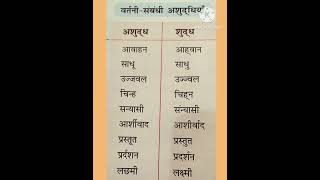 वर्तनी-संबंधी अशुद्धियाँ
अशुद्ध शुद्ध
आवाहन आह्वान
साधू साधु
उज्जवल उज्ज्वल
चिन्ह चिह्न
सन्यासी संन्यासी
आर्शीवाद आशीर्वाद
प्रस्तूत प्रस्तुत
प्रर्दशन प्रदर्शन
लछमी लक्ष्मी